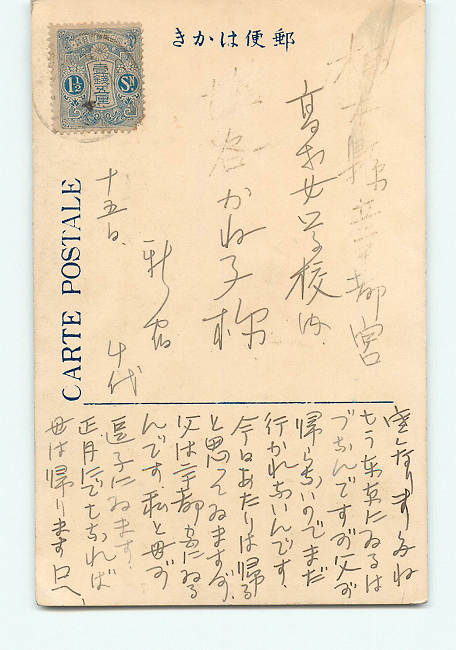 郵便はかき
1½ Sn
壹銭五厘
CARTE POSTALE
縣立宇都宮
高等女学校内
かね子様
十五日、
新宿
千代
なりますね
もう東京にゐるは
づなんですが父が
帰らないのでまだ
行かれないんです、
今日あたりは帰る
と思ってゐますが、
父は宇都宮にゐる
んです、私と母が
逗子にゐます、
正月にでもなれば
母は帰ります